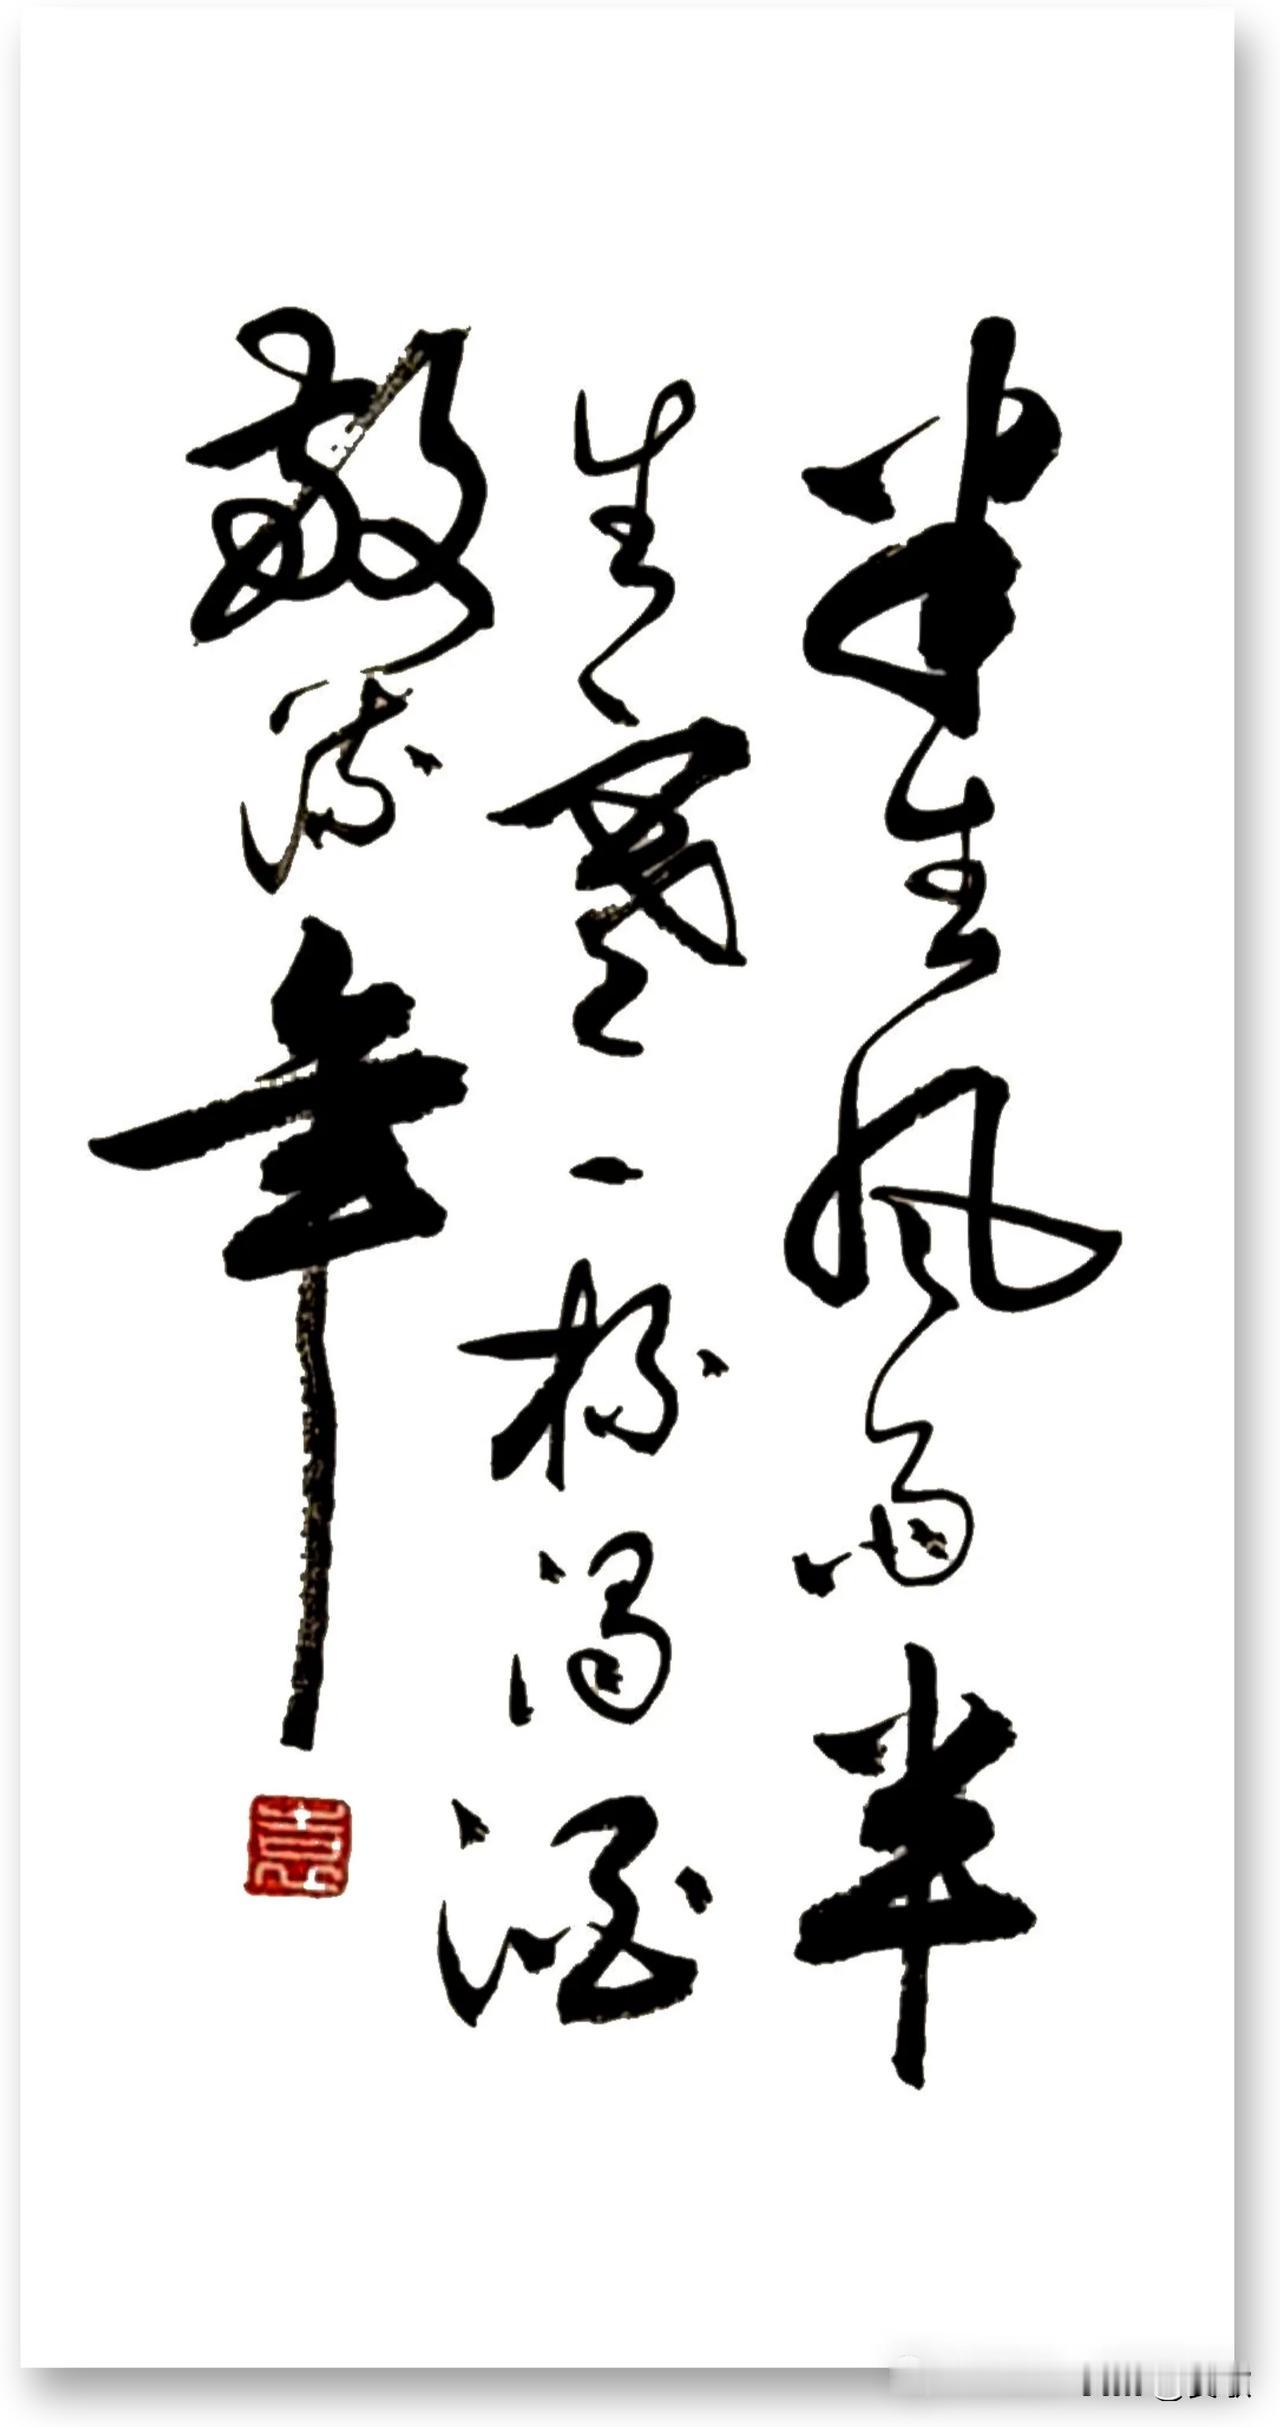 半生风雨半
生寒一杯浊酒
敬流年